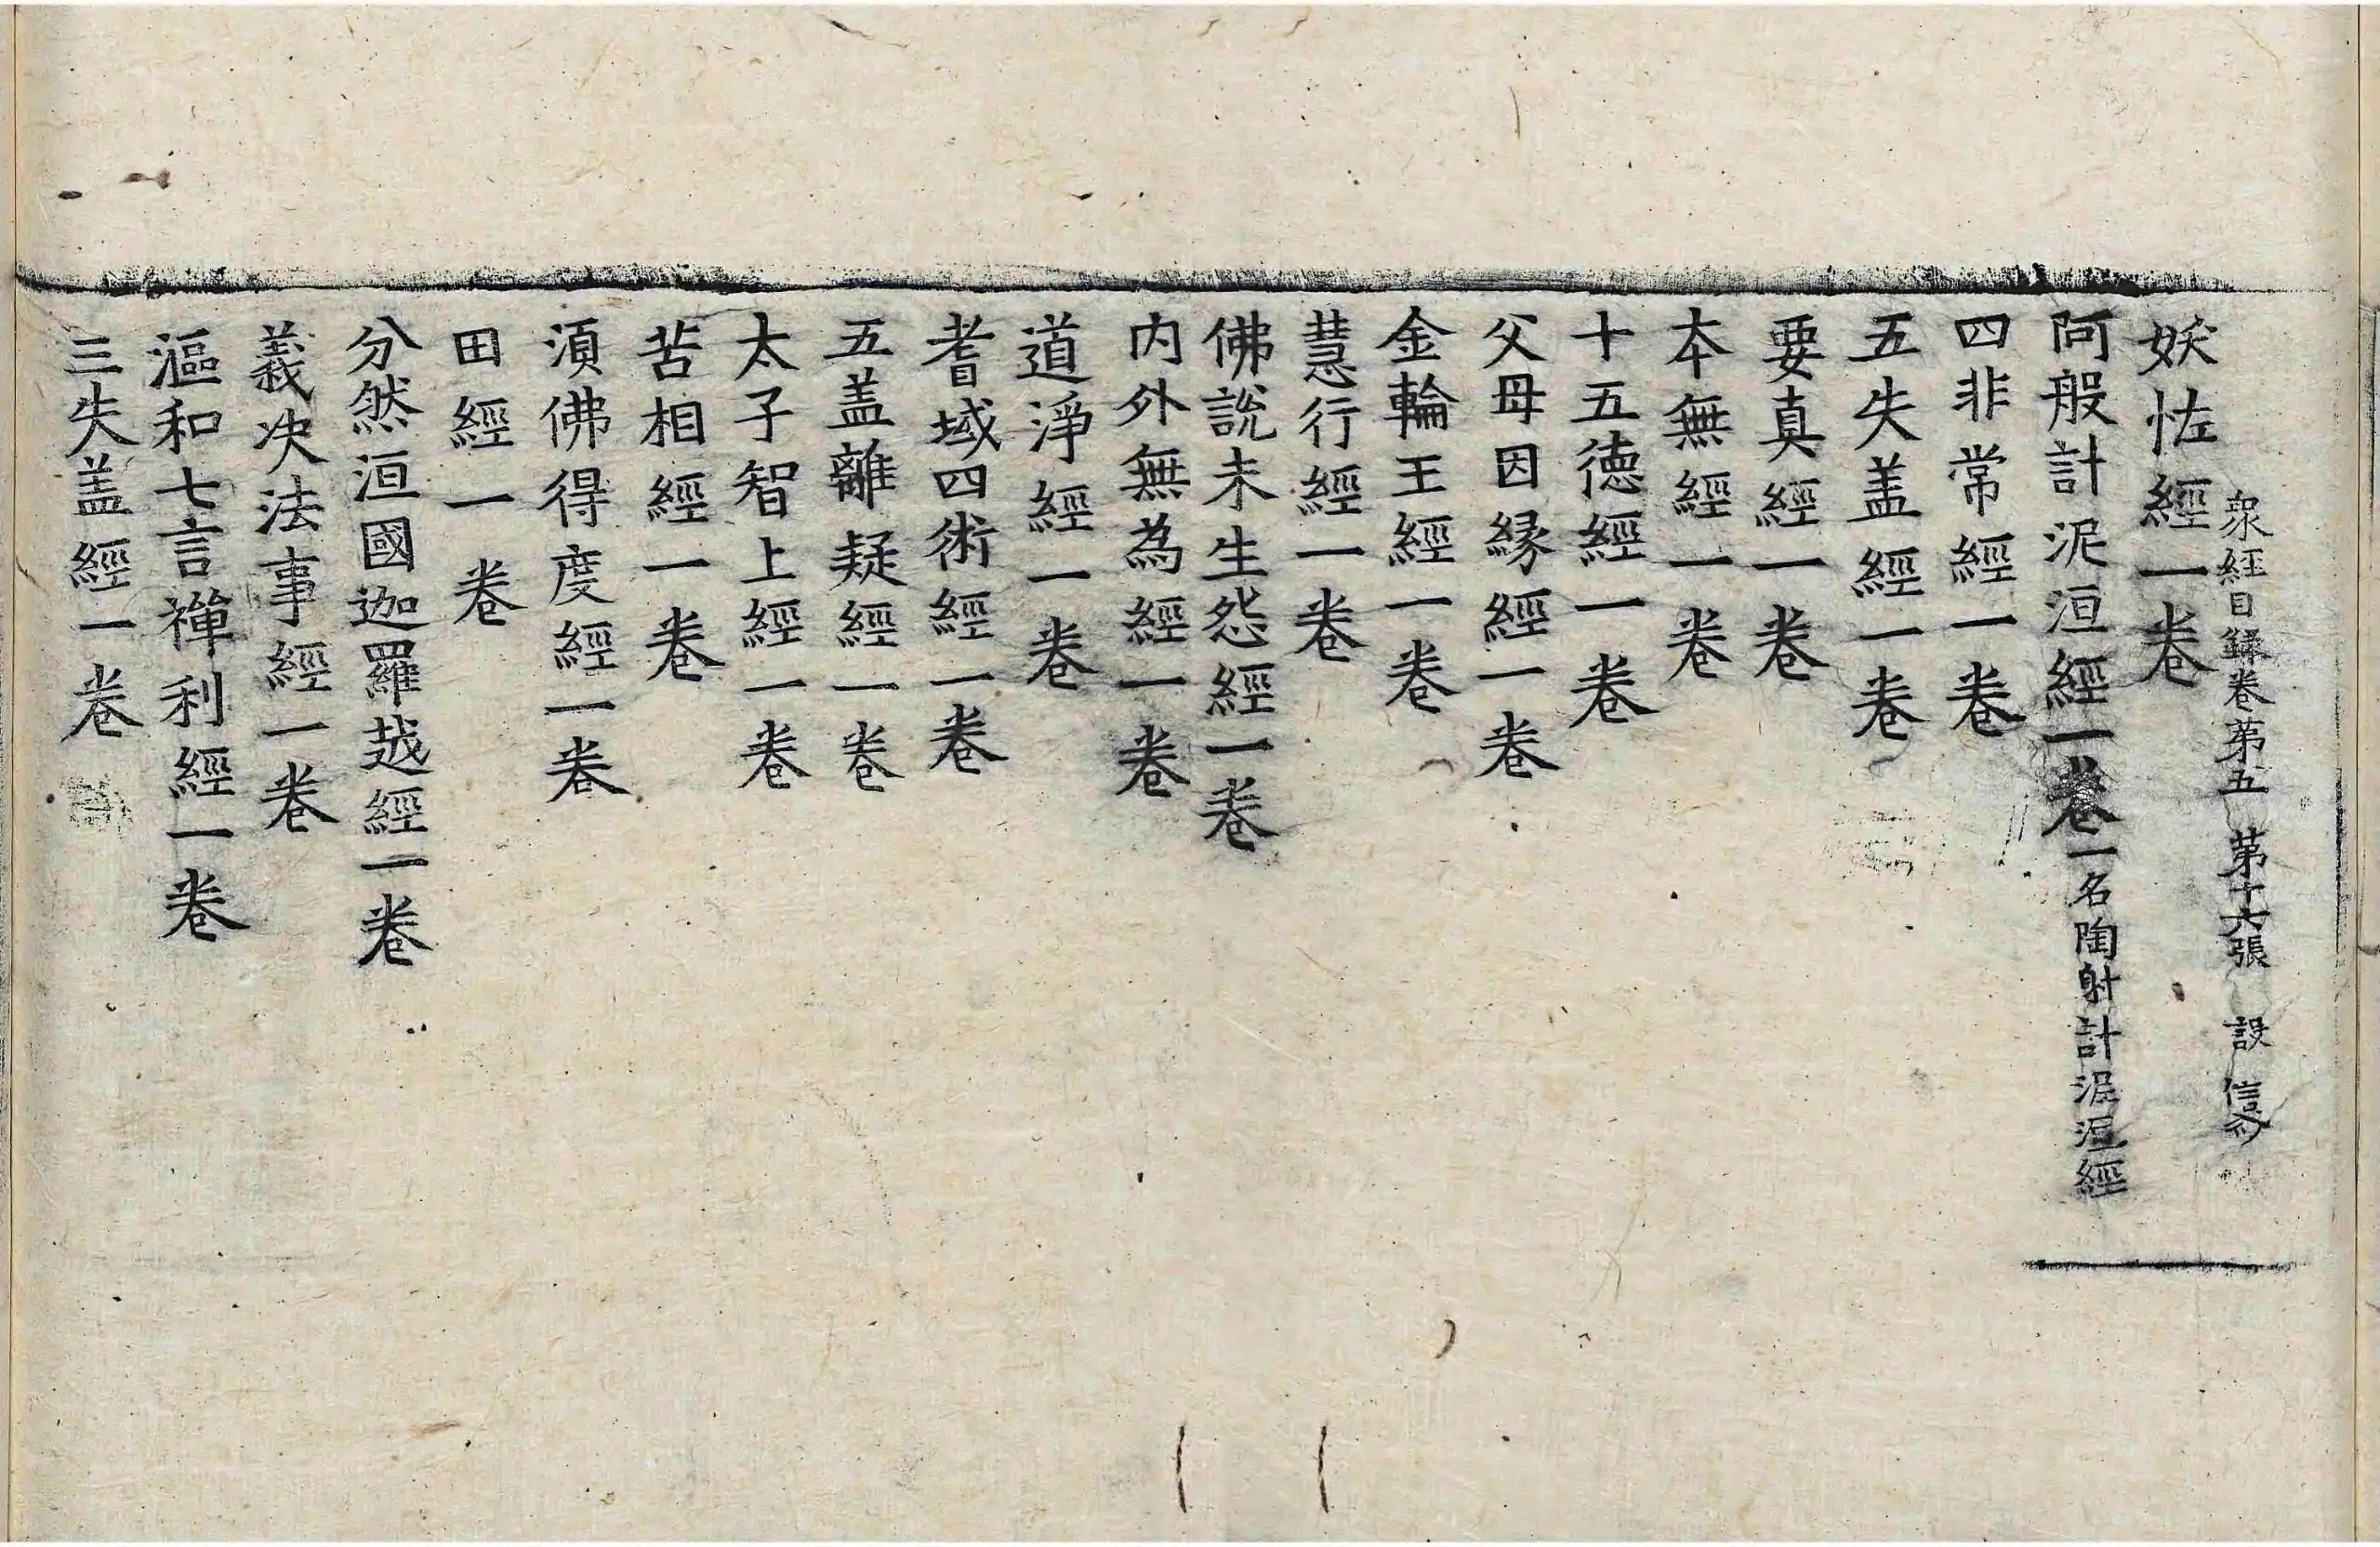 衆經目録卷苐五 苐十六張 設 信
妖恠經一卷
阿般計泥洹經一卷一名陶射計泥洹經
四非常經一卷
五失盖經一卷
要真經一卷
本無經一卷
十五德經一卷
父母因縁經一卷
金輪王經一卷
慧行經一卷
佛說未生怨經一卷
内外無為經一卷
道淨經一卷
耆域四術經一卷
五盖離疑經一卷
太子智上經一卷
苦相經一卷
湏佛得度經一卷
田經一卷
分然洹國迦羅越經一卷
義决法事經一卷
漚和七言禪利經一卷
三失盖經一卷